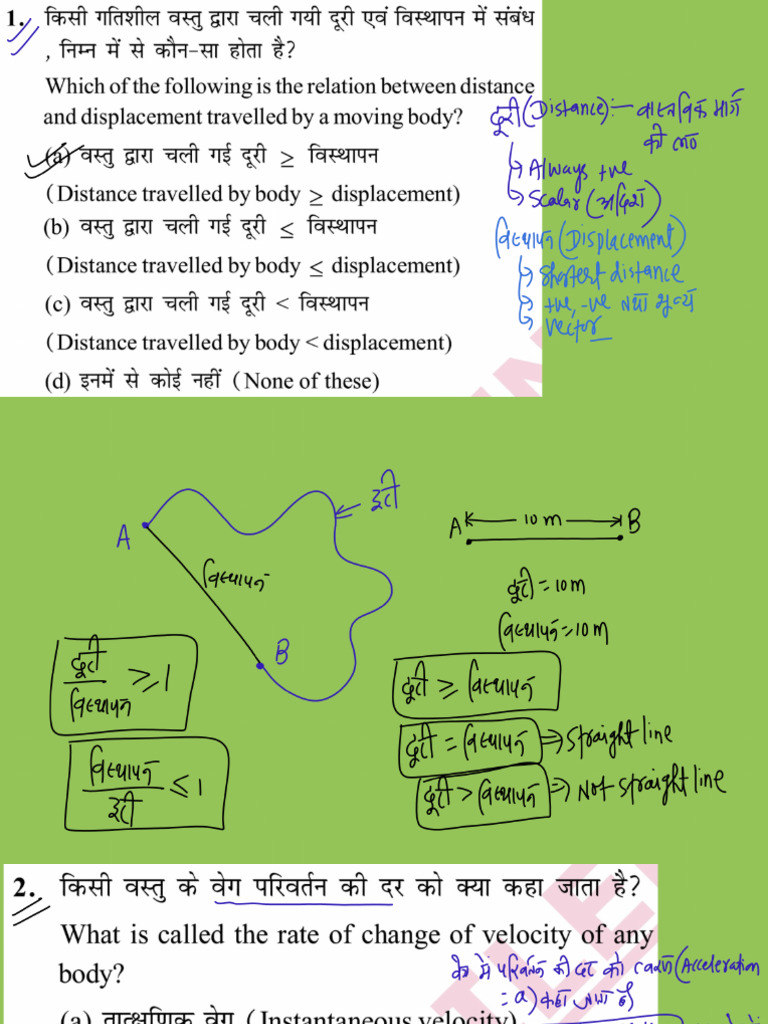 1. किसी गतिशील वस्तु द्वारा चली गयी दूरी एवं विस्थापन में संबंध
, निम्न में से कौन-सा होता है?
Which of the following is the relation between distance
and displacement travelled by a moving body?
(a) वस्तु द्वारा चली गई दूरी ≥ विस्थापन
(Distance travelled by body ≥ displacement)
(b) वस्तु द्वारा चली गई दूरी ≤ विस्थापन
(Distance travelled by body ≤ displacement)
(c) वस्तु द्वारा चली गई दूरी < विस्थापन
(Distance travelled by body < displacement)
(d) इनमें से कोई नहीं (None of these)
दूरी (Distance):- वास्तविक मार्ग
की
Always +ve
Scalar (अदिश)
विस्थापन (Displacement)
Shortest distance
+ve, -ve तथा शून्य
Vector
दूरी
A
विस्थापन
B
A 10 m B
दूरी = 10 m
विस्थापन = 10 m
दूरी/विस्थापन ≥ 1
विस्थापन/दूरी ≤ 1
दूरी ≥ विस्थापन
दूरी = विस्थापन ⇒ straight line
दूरी > विस्थापन ⇒ Not straight line
2. किसी वस्तु के वेग परिवर्तन की दर को क्या कहा जाता है?
What is called the rate of change of velocity of any
body?
में परिवर्तन की दर को त्वरण (Acceleration
= a) कहा जाता है
(a) तात्क्षणिक वेग (Instantaneous velocity)